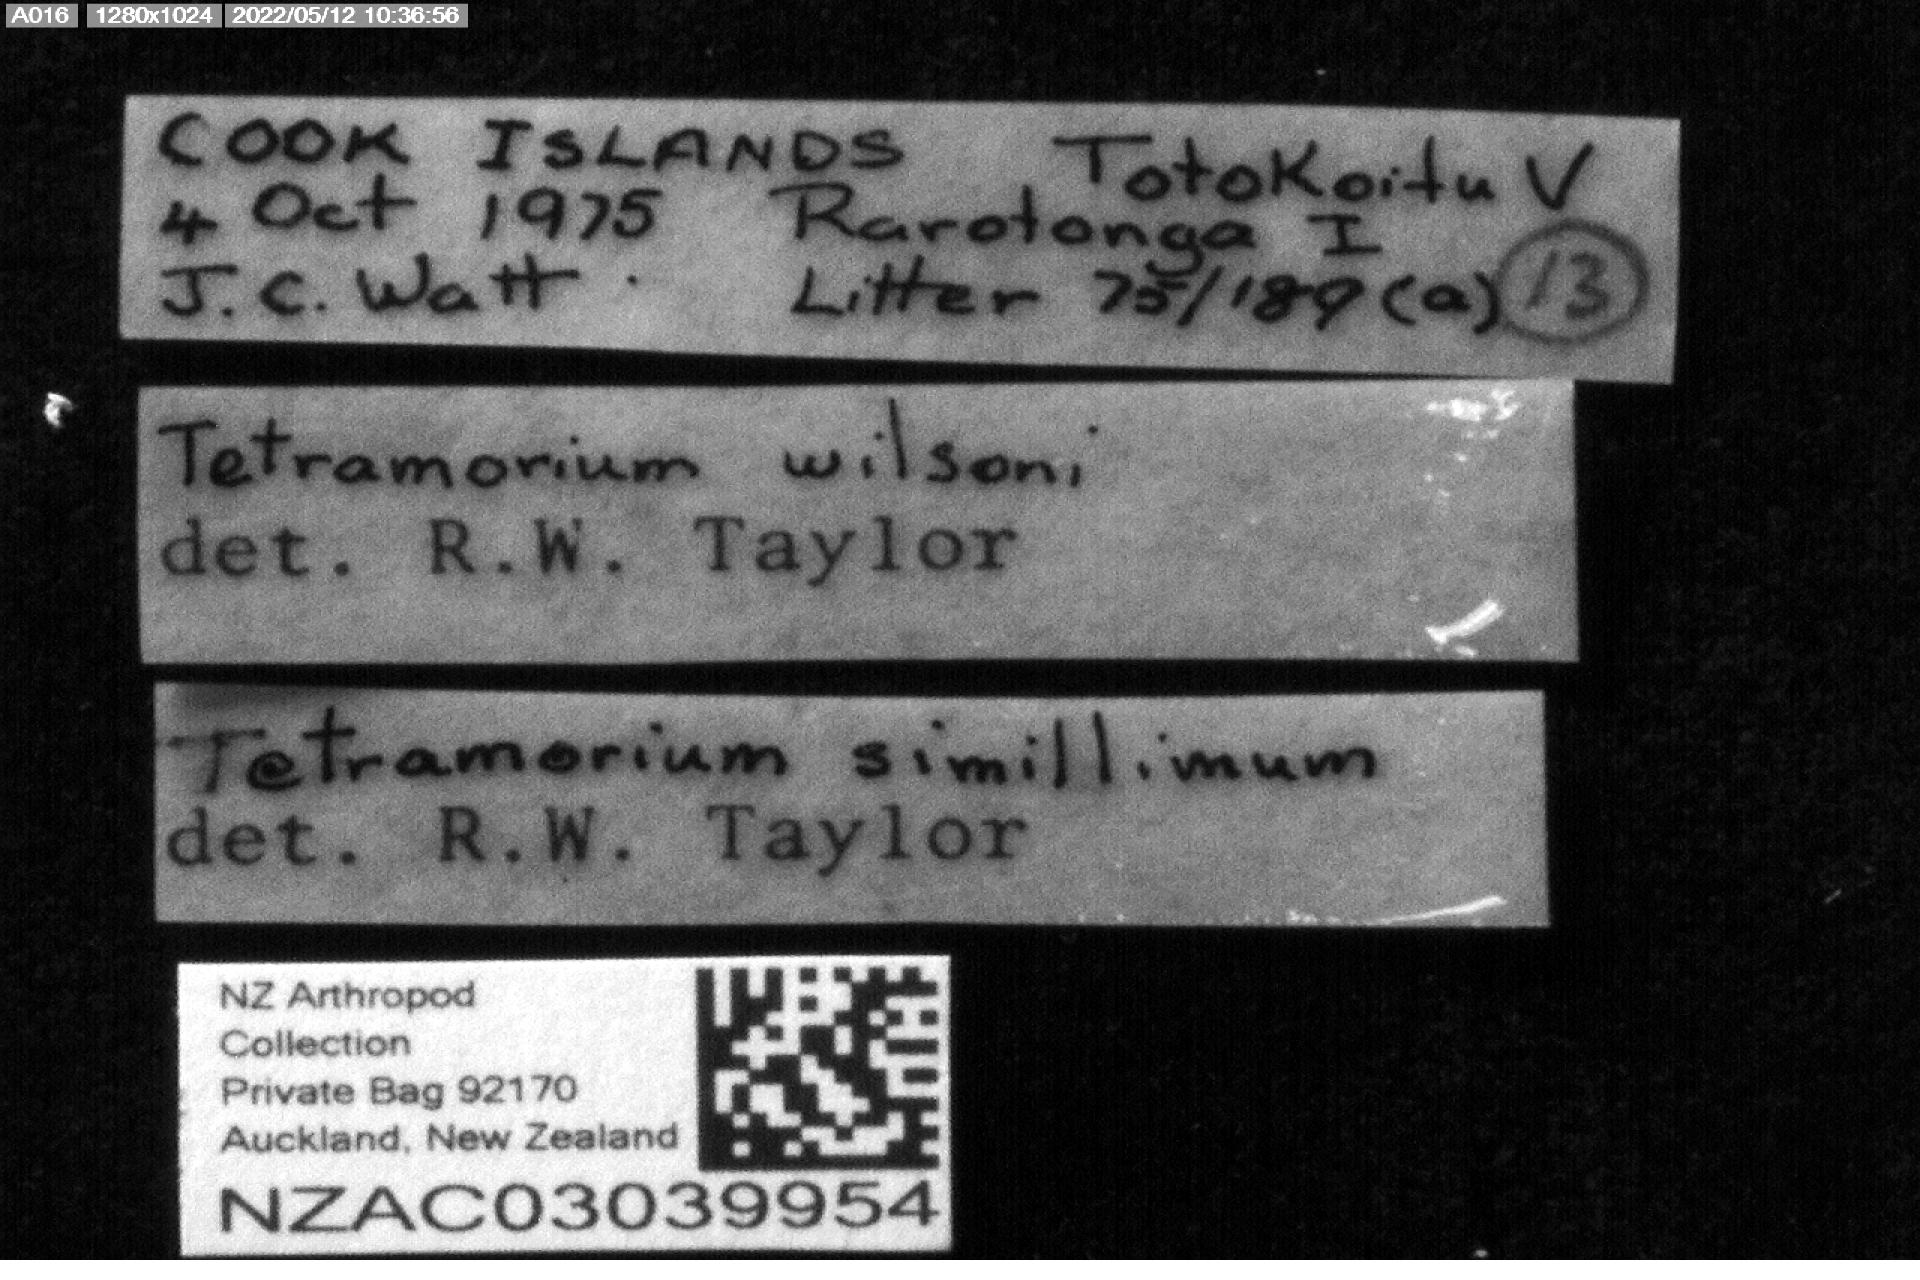 A016 1280x1024 2022/05/12 10:36:56
COOK ISLANDS Totokoitu V
4 Oct 1975 Rarotonga I
J.C. Watt . Litter 75/189 (a) 13
Tetramorium wilsoni
det. R.W. Taylor
Tetramorium simillimum
det. R.W. Taylor
NZ Arthropod
Collection
Private Bag 92170
Auckland, New Zealand
NZAC03039954